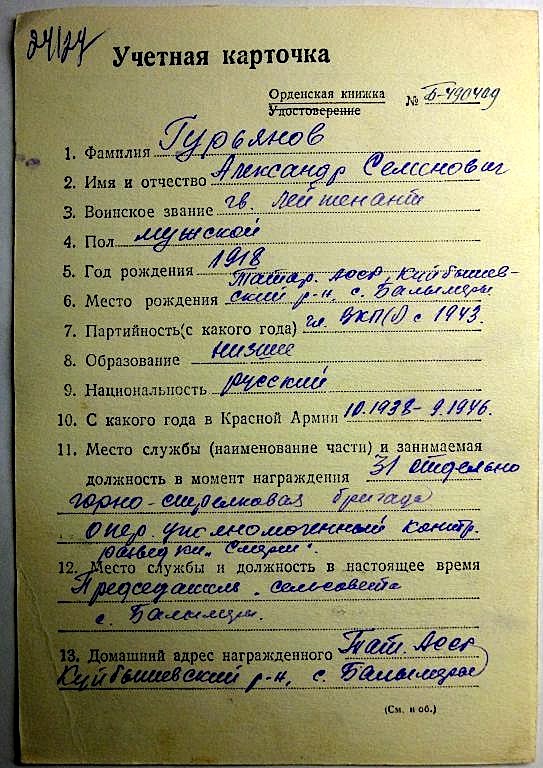 24/24
Учетная карточка
Орденская книжка
Удостоверение
№ Б-490409
1. Фамилия Гурьянов
2. Имя и отчество Александр Семенович
3. Воинское звание гв. лейтенант
4. Пол мужской
5. Год рождения 1918
Татар. АССР, Куйбышев-
6. Место рождения ский р-н, с. Балымеры
7. Партийность (с какого года) чл. ВКП(б) с 1943.
8. Образование низшее
9. Национальность русский
10. С какого года в Красной Армии 10.1938-9.1946.
11. Место службы (наименование части) и занимаемая
должность в момент награждения 31 отдельно
горно-стрелковая бригада
опер. уполномоченный контр.
разведки "Смерш".
12. Место службы и должность в настоящее время
Председатель сельсовета
с. Балымеры.
13. Домашний адрес награжденного Тат. АССР
Куйбышевский р-н, с. Балымеры
(См. н об.)